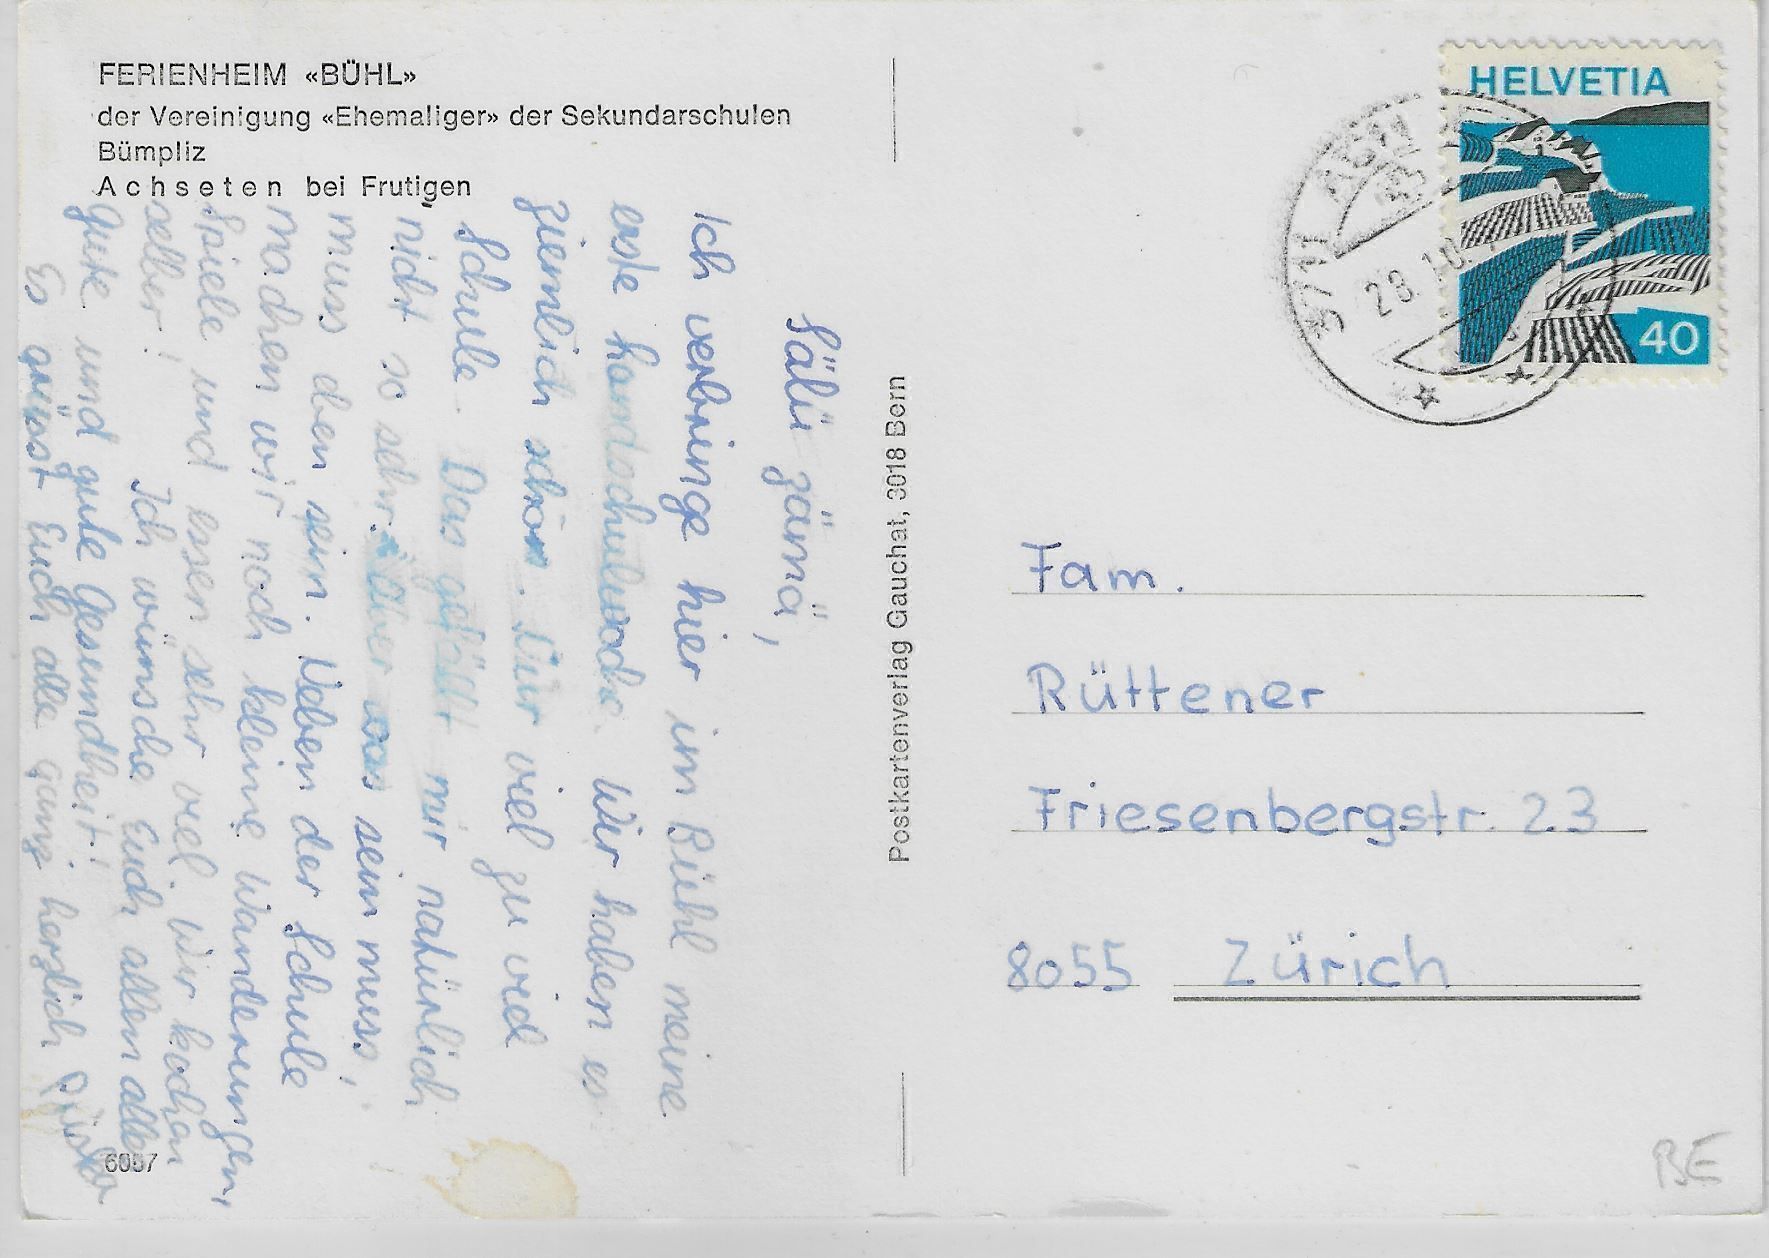 FERIENHEIM «BÜHL»
der Vereinigung «Ehemaliger» der Sekundarschulen
Bümpliz
Achseten bei Frutigen
Sälü zämä,
Ich verbringe hier im Bühl meine
erste Landschulwoche. Wir haben es
ziemlich schön. Nur viel zu viel
Schule. Das gefällt mir natürlich
nicht so sehr. Aber was sein muss,
muss eben sein. Neben der Schule
machen wir noch kleine Wanderungen,
Spiele und essen sehr viel. Wir kochen
selber! Ich wünsche Euch allen alles
Gute und gute Gesundheit!
Es grüsst Euch alle ganz herzlich
6007
Postkartenverlag Gauchat, 3018 Bern
HELVETIA
40
3711
23.10
Fam.
Rüttener
Friesenbergstr. 23
8055 Zürich
BE